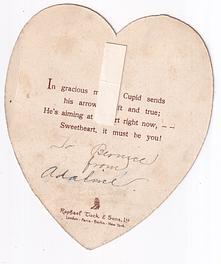 In gracious m Cupid sends
his arrow ft and true;
He's aiming at rt right now, --
Sweetheart, it must be you!
To Bernyce
from
Adaline.
Raphael Tuck & Sons, Ltd
London - Paris - Berlin - New York.